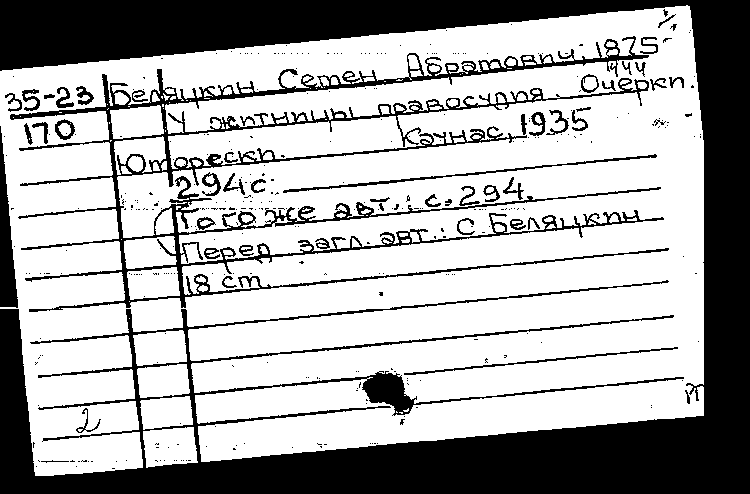 35-23
170
Беляцкин Семен Абрамович; 1875-
1944
У житницы правосудия. Очерки.
Юморески. Каунас, 1935
294с.
Того же авт.: с. 294.
Перед загл. авт.: С. Беляцкин
18 ст.
2